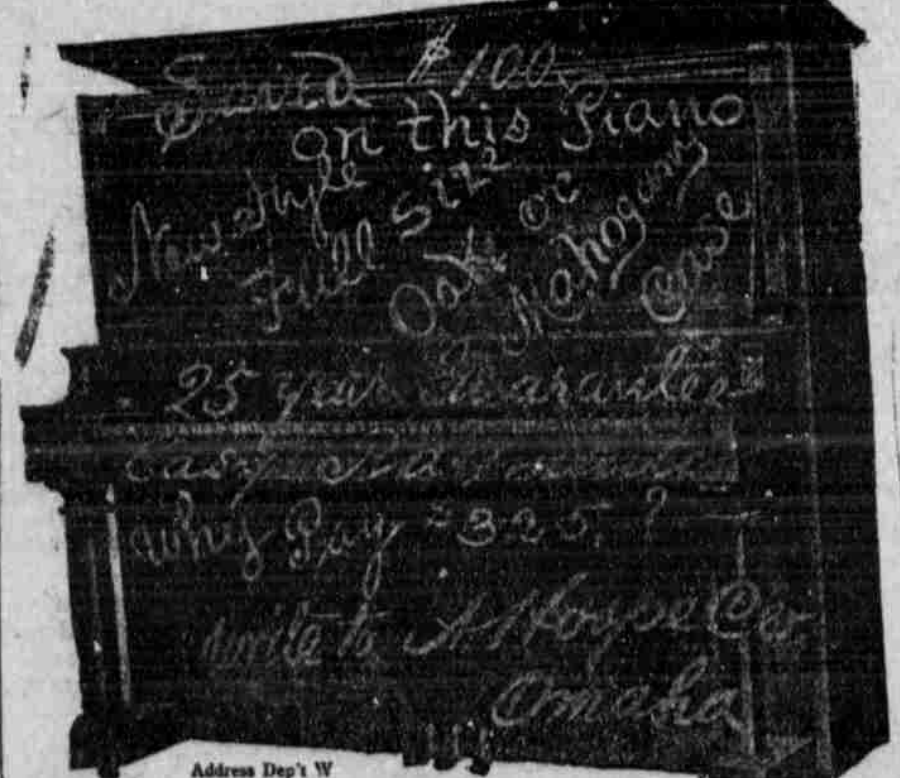 Saved $100.
on this Piano
New Style
Full Size
Oak or
Mahogany
Case
25 year Guarantee
Easy Payments
Why Pay $325.?
write to A Hospe Co.
Omaha
Address Dep't W